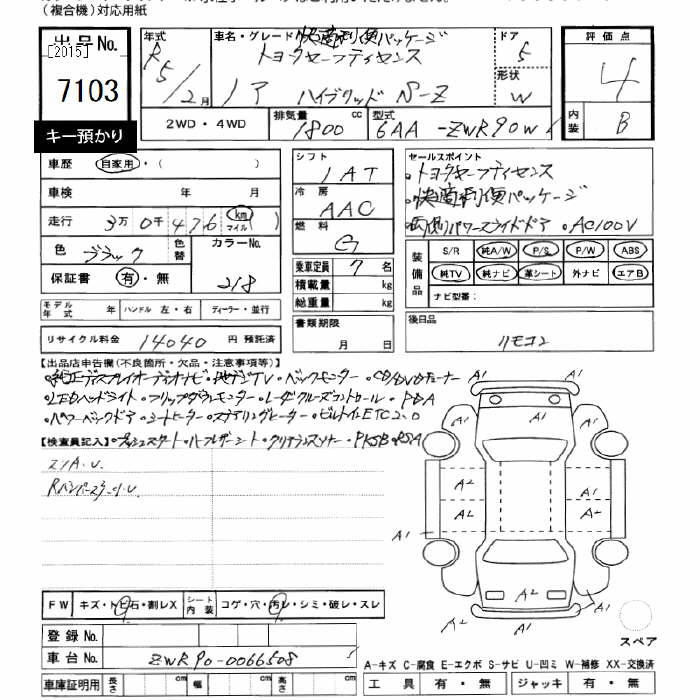 (複合機)対応用紙
出品No.
[2015]
7103
キー預かり
年式
R5/2月
車名・グレード 快適利便パッケージ
トヨタセーフティセンス
ノア ハイブリッド S-Z
ドア
5
形状
W
評価点
4
内装
B
2WD・4WD
排気量
1800 cc
型式
6AA-ZWR90W
車歴 自家用・( )
車検 年 月
走行 3万0千476 km マイル ( )
色 ブラック 色替 カラーNo. 218
保証書 有・無
シフト
IAT
冷房
AAC
燃料
G
乗車定員 7名
積載量 kg
総重量 kg
セールスポイント
・トヨタセーフティセンス
・快適利便パッケージ
・両側パワースライドドア ・AC100V
装備品
S/R 純A/W P/S P/W ABS
純TV 純ナビ 革シート 外ナビ エアB
ナビ型番:
モデル年式 年 ハンドル 左・右 ディーラー・並行
リサイクル料金 14040 円 預託済
書類期限
月 日
後日品
リモコン
【出品店申告欄(不良箇所・欠品・注意事項等)】
・純正ディスプレイオーディオナビ・地デジTV・バックモニター・CD/DVDチューナー
・LEDヘッドライト・フリップダウンモニター・レーダークルーズコントロール・PDA
・パワーバックドア・シートヒーター・ステアリングヒーター・ビルトインETC2.0
【検査員記入】・プッシュスタート・ハーフレザーシート・クリアランスソナー・PKSB・BSM
スリA.U.
A1
A1
A1
A1
A2
A2
A2
A1
A1
A1
A1
A2
A2
A1
A1
FW キズ・トビ石・割レX シート内装 コゲ・穴・汚レ・シミ・破レ・スレ
登録No.
車台No. ZWR90-0066508
車庫証明用 長さ cm 幅 cm 高さ cm
スペア
A-キズ C-腐食 E-エクボ S-サビ U-凹ミ W-補修 XX-交換済
工具 有・無 ジャッキ 有・無